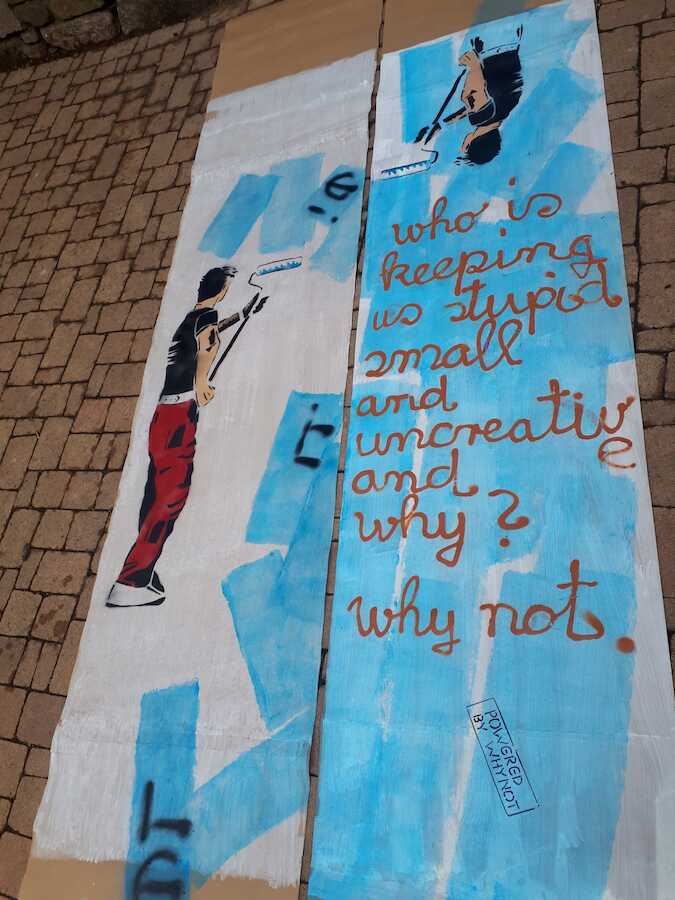 who is
keeping
us stupid
small
and
uncreative
and
why?
why not.
POWERED
BY WHYNOT